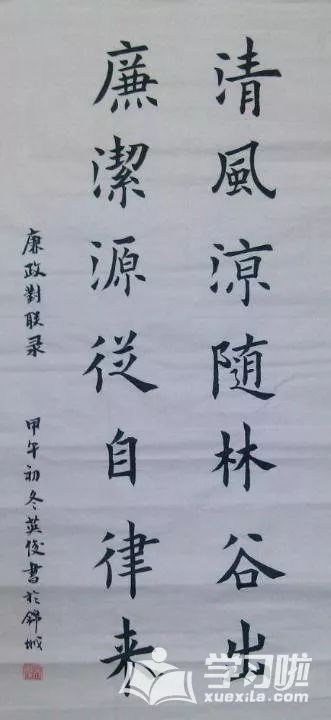 清風涼隨林谷出
廉潔源從自律来
廉政對联录
甲午初冬英俊書於錦城
学习啦
xuexila.com